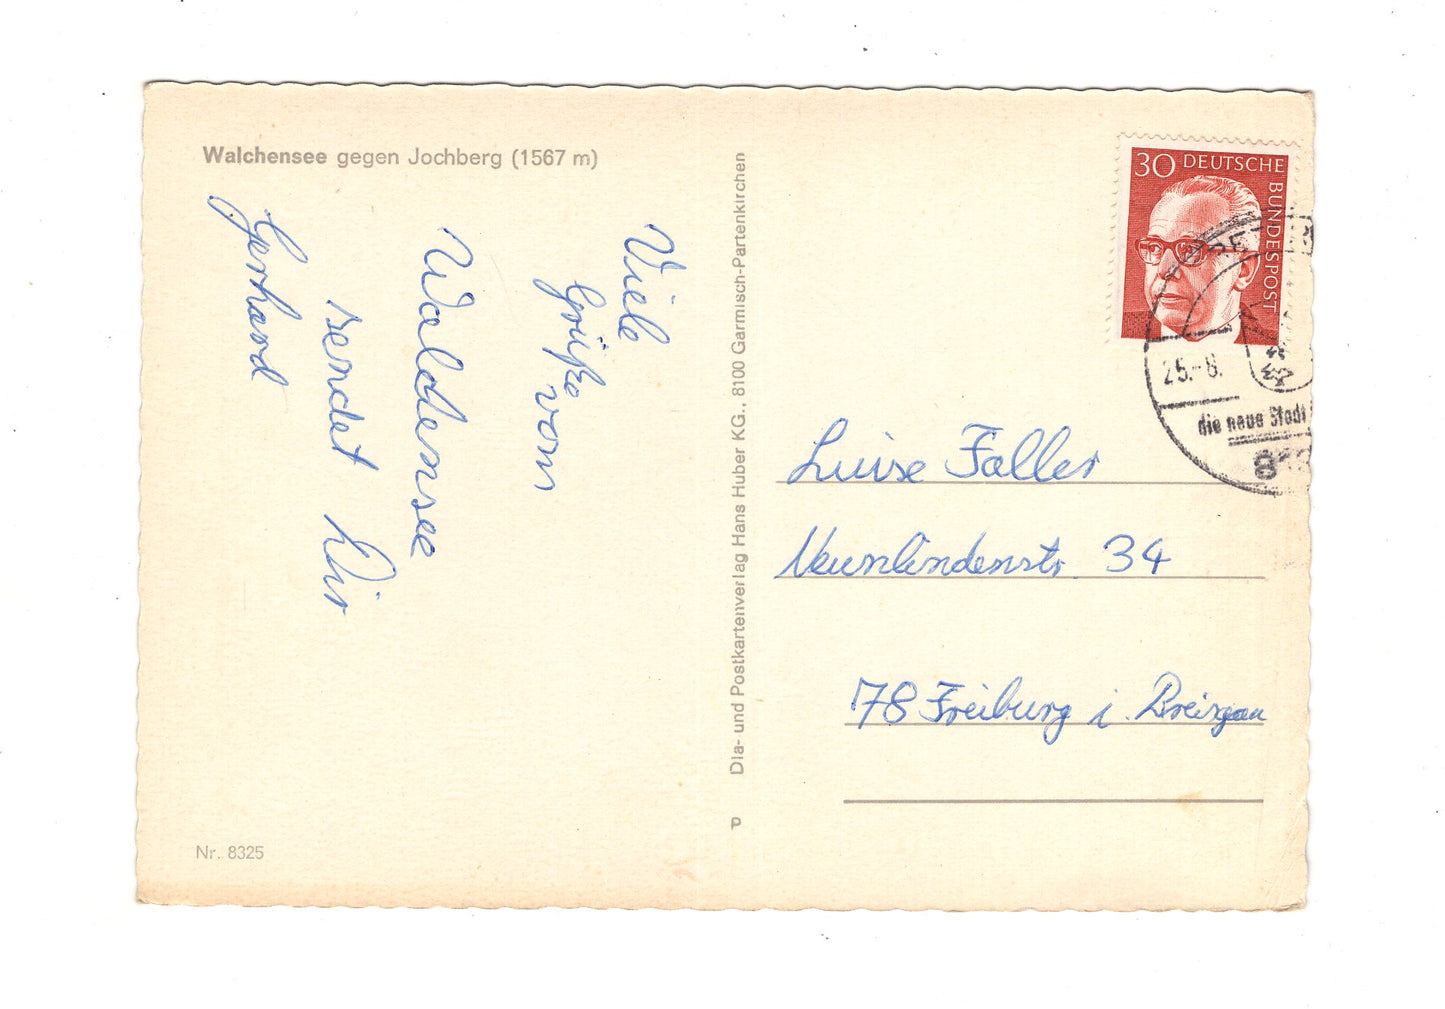 Walchensee gegen Jochberg (1567 m)
Viele
Grüße
vom
Waldensee
sendet Dir
Gerhard
Nr. 8325
Dia- und Postkartenverlag Hans Huber KG., 8100 Garmisch-Partenkirchen
30 DEUTSCHE BUNDESPOST
25.-8.
die neue Stadt
Luise Faller
Neunlindenstr. 34
78 Freiburg i. Breisgau